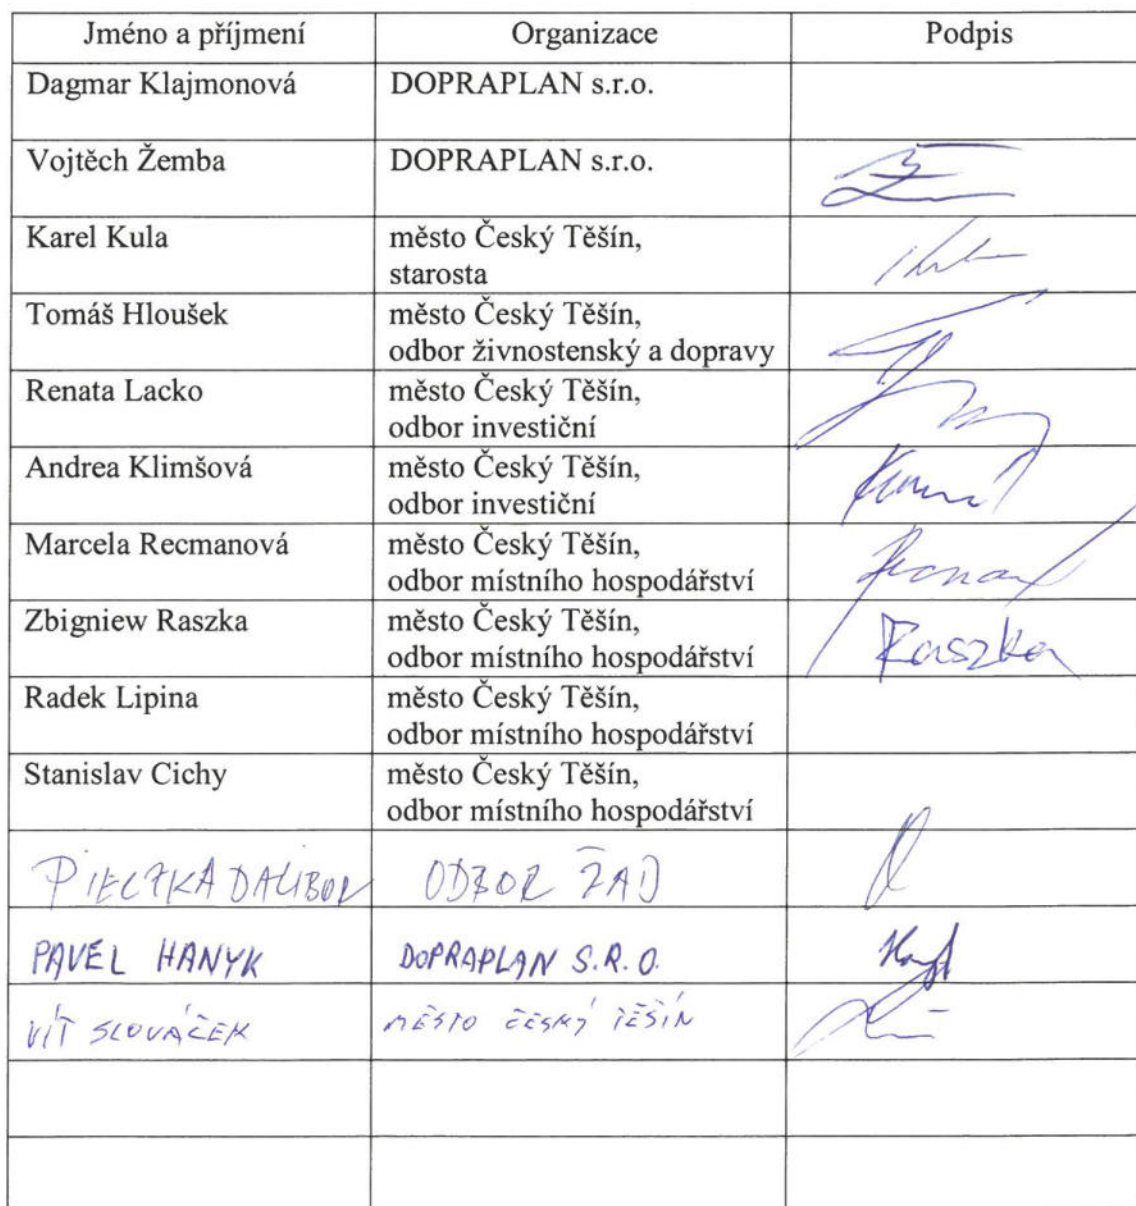 Jméno a příjmení Organizace Podpis
Dagmar Klajmonová DOPRAPLAN s.r.o.
Vojtěch Žemba DOPRAPLAN s.r.o.
Karel Kula město Český Těšín,
starosta
Tomáš Hloušek město Český Těšín,
odbor živnostenský a dopravy
Renata Lacko město Český Těšín,
odbor investiční
Andrea Klimšová město Český Těšín,
odbor investiční
Marcela Recmanová město Český Těšín,
odbor místního hospodářství
Zbigniew Raszka město Český Těšín,
odbor místního hospodářství Raszka
Radek Lipina město Český Těšín,
odbor místního hospodářství
Stanislav Cichy město Český Těšín,
odbor místního hospodářství
PIECZKA DALIBOR ODBOR ŽAD
PAVEL HANYK DOPRAPLAN S.R.O.
VÍT SLOVÁČEK MĚSTO ČESKÝ TĚŠÍN